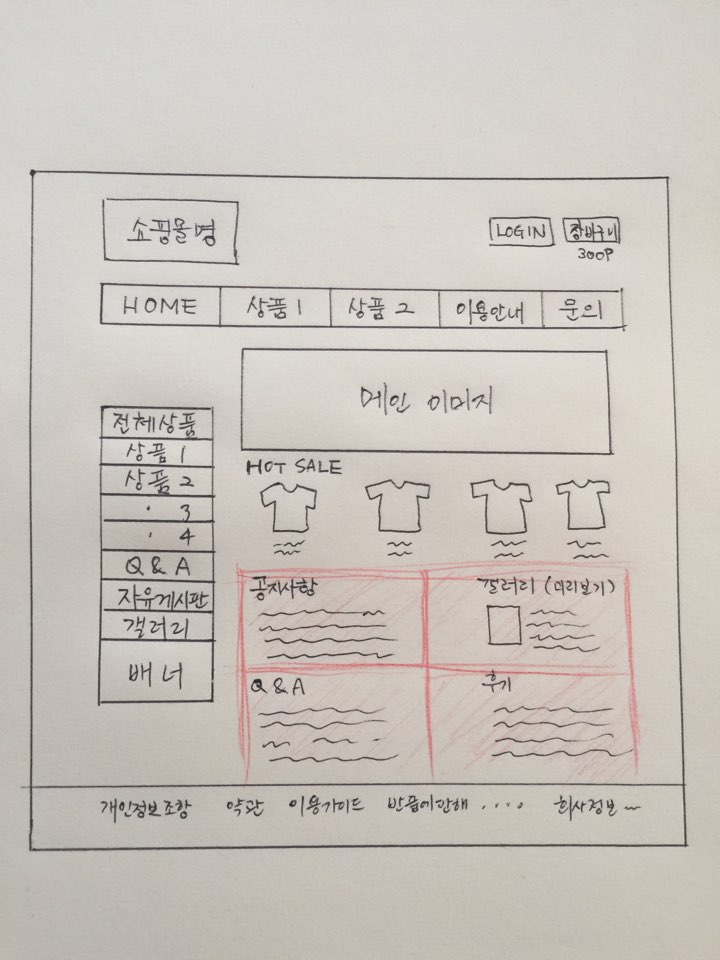 쇼핑몰명
LOGIN 장바구니
300P
HOME 상품 1 상품 2 이용안내 문의
메인 이미지
전체상품
상품 1
상품 2
· 3
· 4
Q & A
자유게시판
갤러리
배너
HOT SALE
공지사항 갤러리 (미리보기)
Q & A 후기
개인정보조항 약관 이용가이드 반품에관해 .... 회사정보~